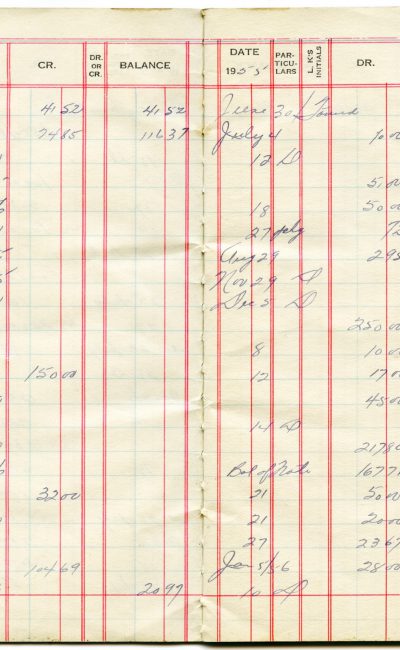 CR. DR. OR CR. BALANCE
41 52 41 52
74 85 116 37
150 00
32 00
104 69
20 97
DATE PAR-TICU-LARS L. K'S INITIALS DR.
1955
June 30
July 4 10 00
12 D
5 00
18 50 00
27
Aug 29 295
Nov 29 D
Dec 5 D
250 00
8 10 00
12 17 00
45 00
14 D
217 80
Bal of Note 167 7
21 50 0
21 20 00
27 23 67
Jan 5/56 28 00
10 D